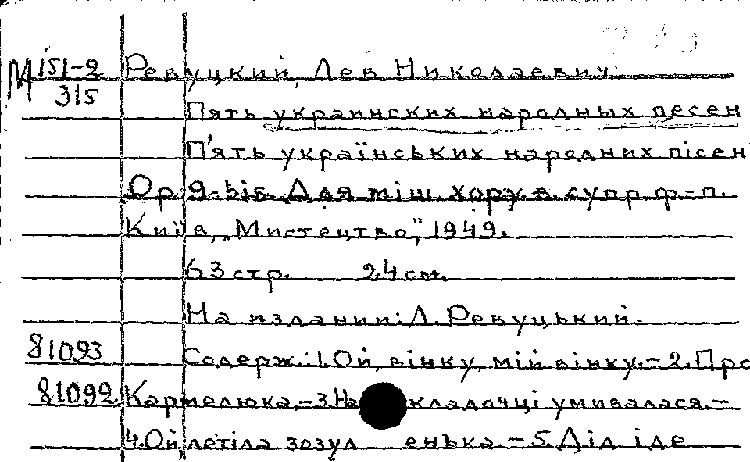 М 151-2 Ревуцкий, Лев Николаевич.
315
Пять украинских народных песен
П'ять українських народних пісень
Op. 9-bis. Для міш. хору в супр. ф-п.
Київ, „Мистецтво", 1949.
63 стр. 24 см.
На издании: Л. Ревуцький.
81093 Содерж.: 1. Ой, вінку, мій вінку. – 2. Про
81092 Кармелюка. – 3. На кладочці умивалася. –
4. Ой, летіла зозуленька. – 5. Дід іде